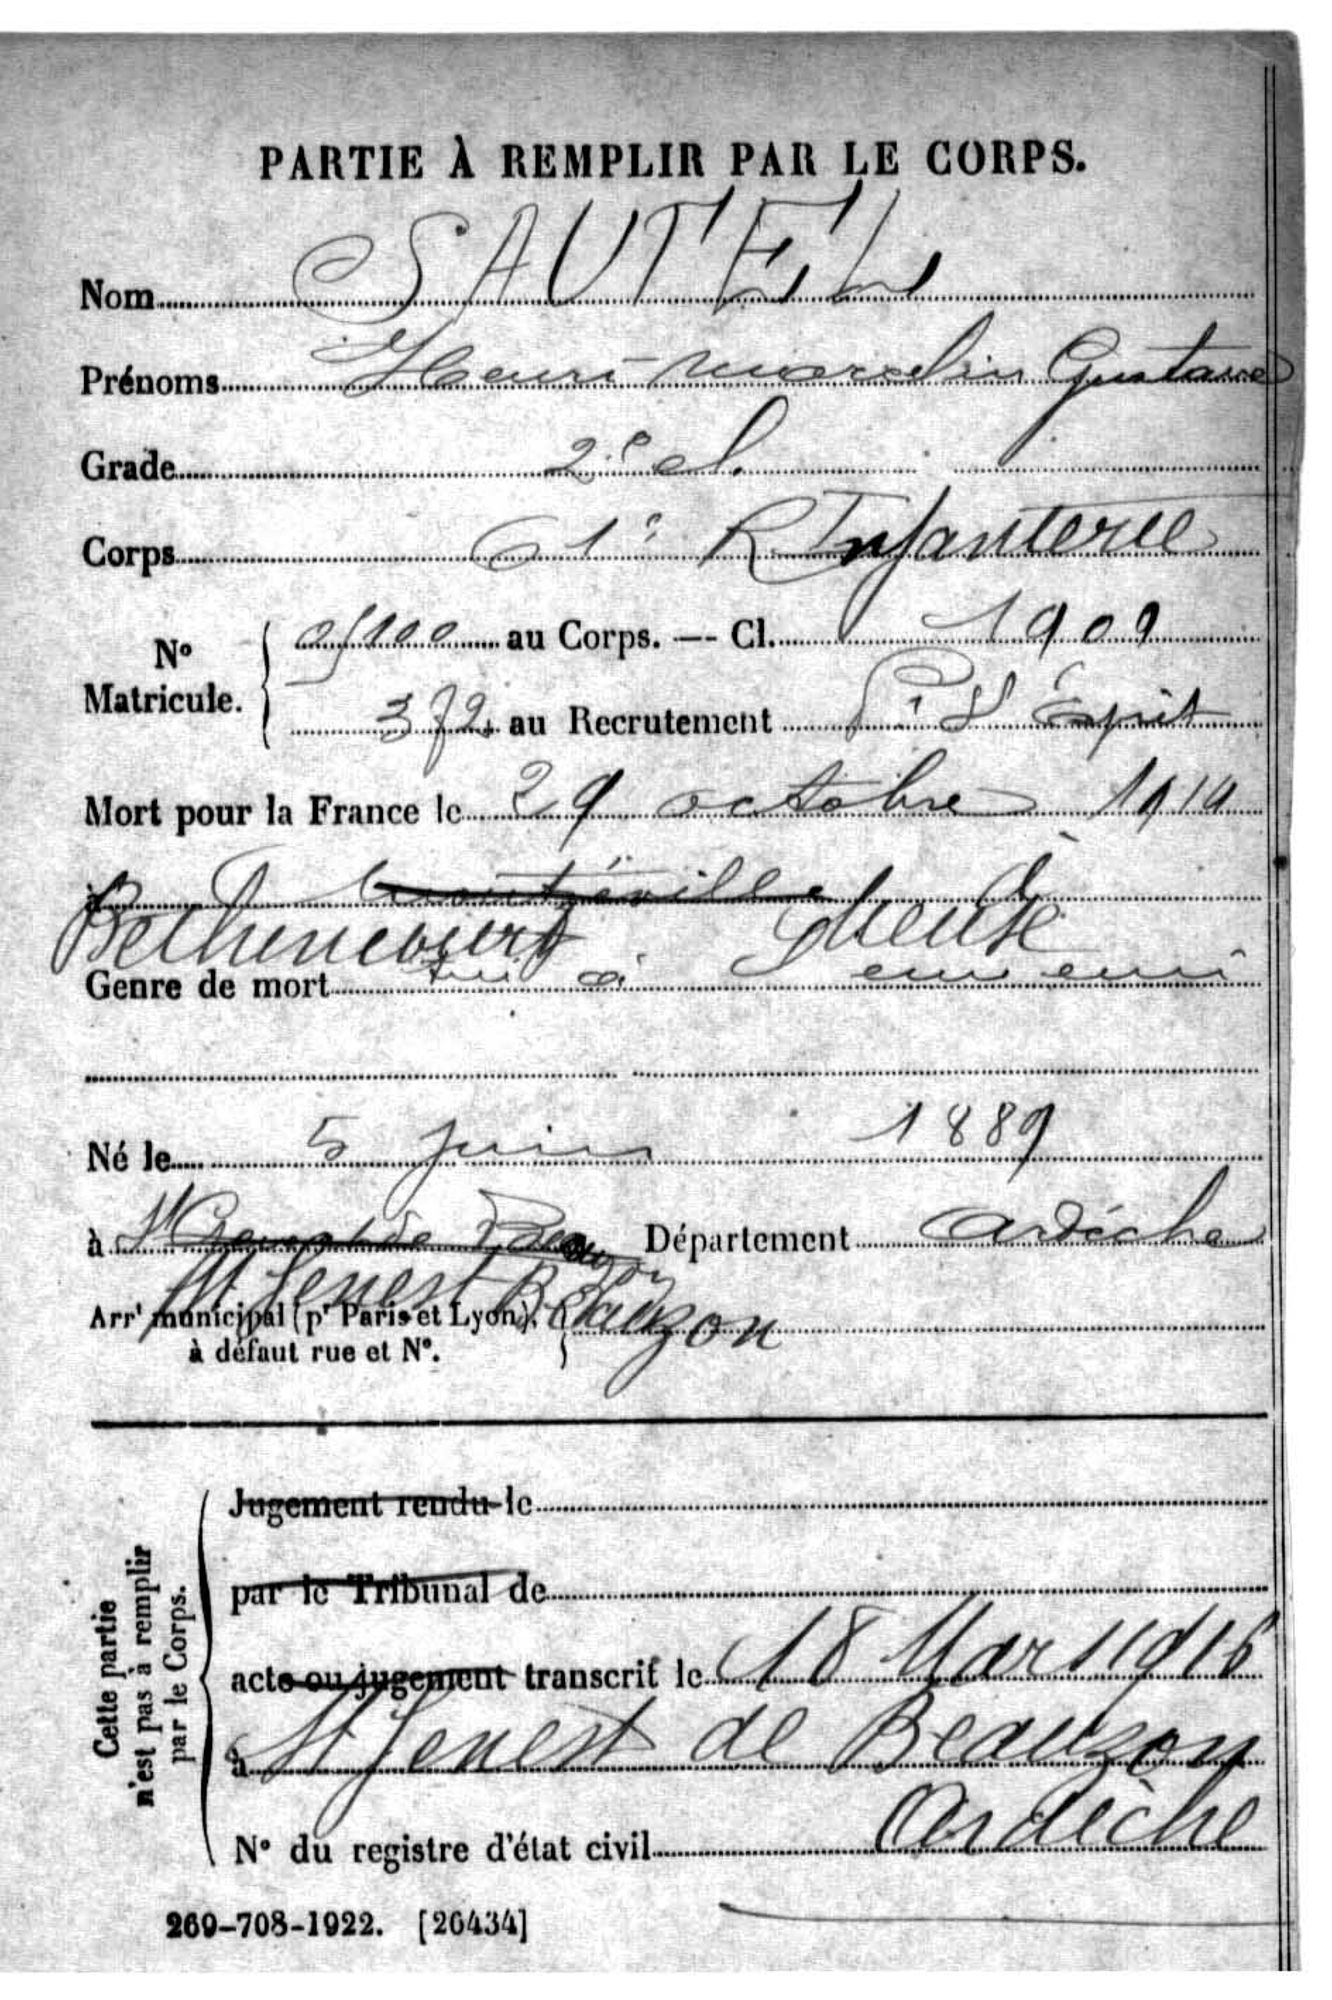 PARTIE À REMPLIR PAR LE CORPS.
Nom SAUTEL
Prénoms Henri Marcelin Gustave
Grade 2e cl.
Corps 61e R Infanterie
No Matricule. au Corps. — Cl. 1909
372 au Recrutement Pt St Esprit
Mort pour la France le 29 octobre 1914
à
Bethincourt Meuse
Genre de mort tué à l'ennemi
Né le 5 juin 1889
à St Genest de Beauzon Département Ardèche
St Genest Beauzon
Arrt municipal (pr Paris et Lyon),
à défaut rue et No.
Cette partie
n'est pas à remplir
par le Corps.
Jugement rendu le
par le Tribunal de
acte ou jugement transcrit le 18 Mars 1916
à St Genest de Beauzon
Ardèche
No du registre d'état civil
269-708-1922. [26434]